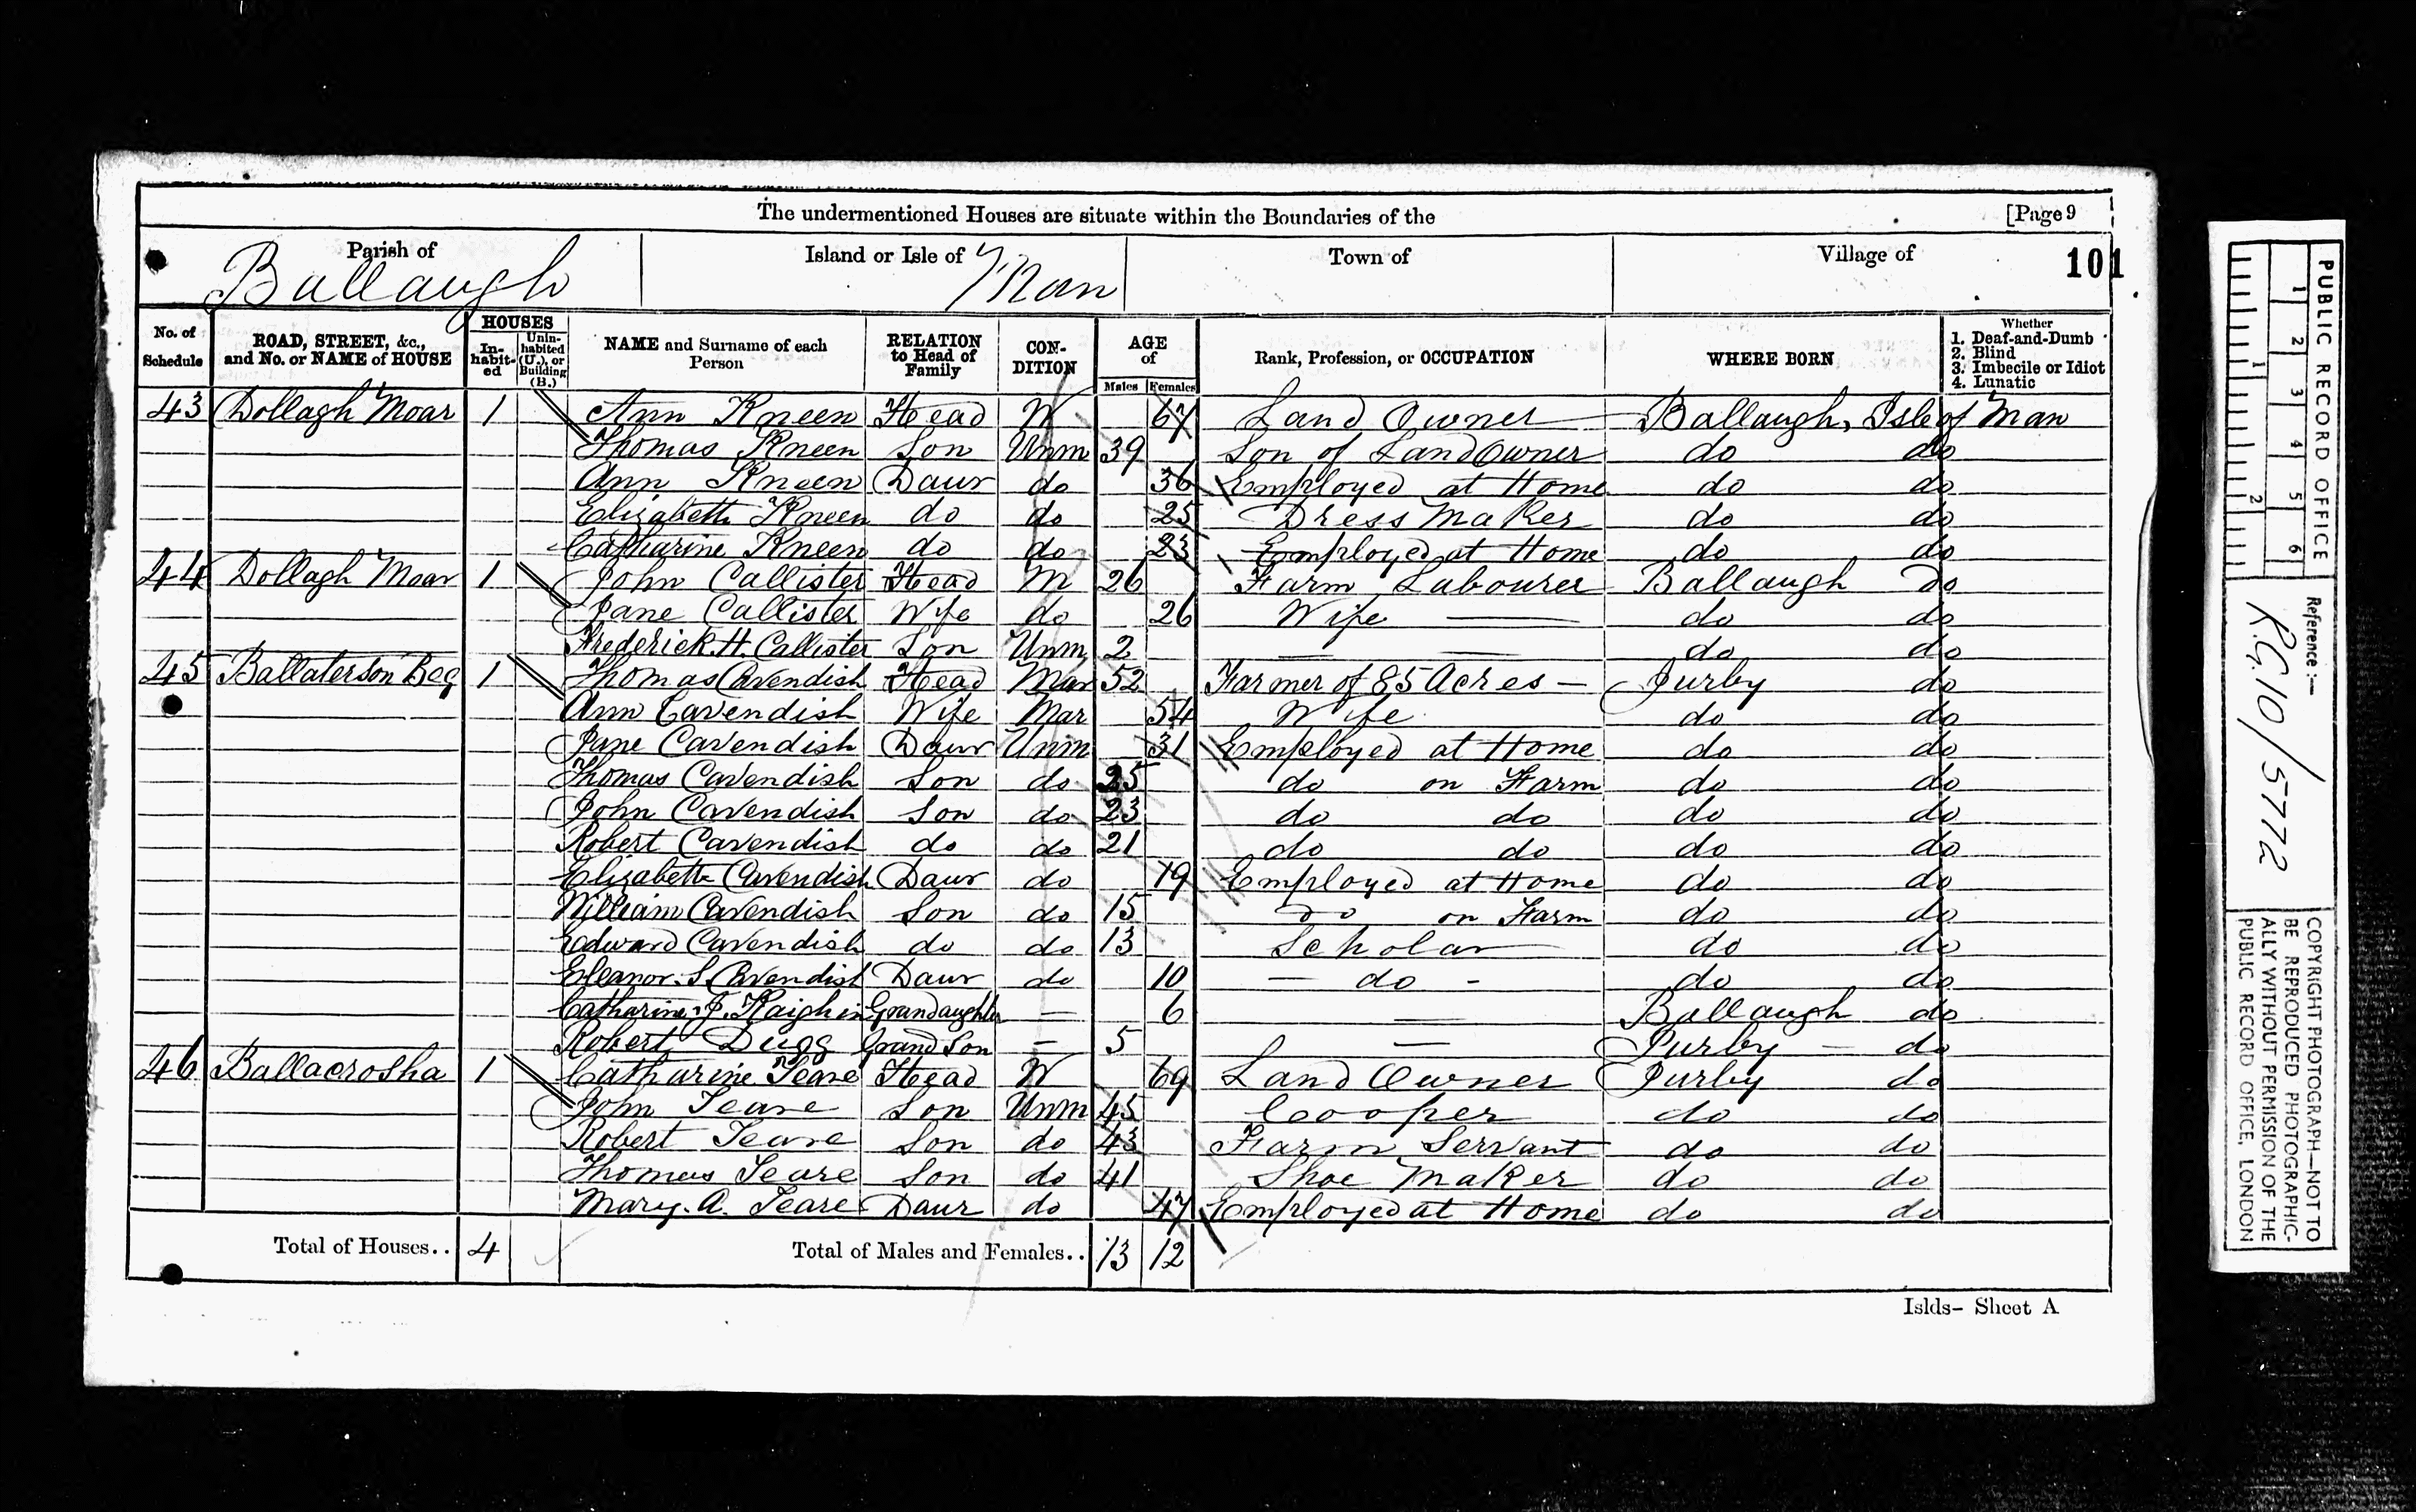 The undermentioned Houses are situate within the Boundaries of the [Page 9
Parish of Ballaugh Island or Isle of Man Town of Village of 101
No. of Schedule ROAD, STREET, &c., and No. or NAME of HOUSE HOUSES Inhabited Uninhabited (U.), or Building (B.) NAME and Surname of each Person RELATION to Head of Family CONDITION AGE of Males Females Rank, Profession, or OCCUPATION WHERE BORN Whether 1. Deaf-and-Dumb 2. Blind 3. Imbecile or Idiot 4. Lunatic
43 Dollagh Moar 1 Ann Kneen Head W 67 Land Owner Ballaugh, Isle of Man
Thomas Kneen Son Unm 39 Son of Land Owner do do
Ann Kneen Daur do 36 Employed at Home do do
Elizabeth Kneen do do 25 Dress Maker do do
Catharine Kneen do do 23 Employed at Home do do
44 Dollagh Moar 1 John Callister Head M 26 Farm Labourer Ballaugh do
Jane Callister Wife do 26 Wife — do do
Frederick. H. Callister Son Unm 2 — — do do
45 Ballaterson Beg 1 Thomas Cavendish Head Mar 52 Farmer of 85 Acres — Jurby do
Ann Cavendish Wife Mar 54 Wife do do
Jane Cavendish Daur Unm 31 Employed at Home do do
Thomas Cavendish Son do 25 do on Farm do do
John Cavendish Son do 23 do do do do
Robert Cavendish do do 21 do do do do
Elizabeth Cavendish Daur do 19 Employed at Home do do
William Cavendish Son do 15 do on Farm do do
Edward Cavendish do do 13 Scholar do do
Eleanor. S. Cavendish Daur do 10 — do - do do
Catharine. J. Kaighin Grandaughter — 6 — Ballaugh do
Robert Dugg Grand Son — 5 — Jurby — do
46 Ballacrosha 1 Catharine Teare Head W 69 Land Owner Jurby do
John Teare Son Unm 45 Cooper do do
Robert Teare Son do 43 Farm Servant do do
Thomas Teare Son do 41 Shoe Maker do do
Mary. A. Teare Daur do 47 Employed at Home do do
Total of Houses.. 4 Total of Males and Females.. 13 12
Islds- Sheet A
PUBLIC RECORD OFFICE
1 2 3 4 5 6
1 2
Reference :—
R.G. 10/5772
COPYRIGHT PHOTOGRAPH—NOT TO
BE REPRODUCED PHOTOGRAPHIC-
ALLY WITHOUT PERMISSION OF THE
PUBLIC RECORD OFFICE, LONDON